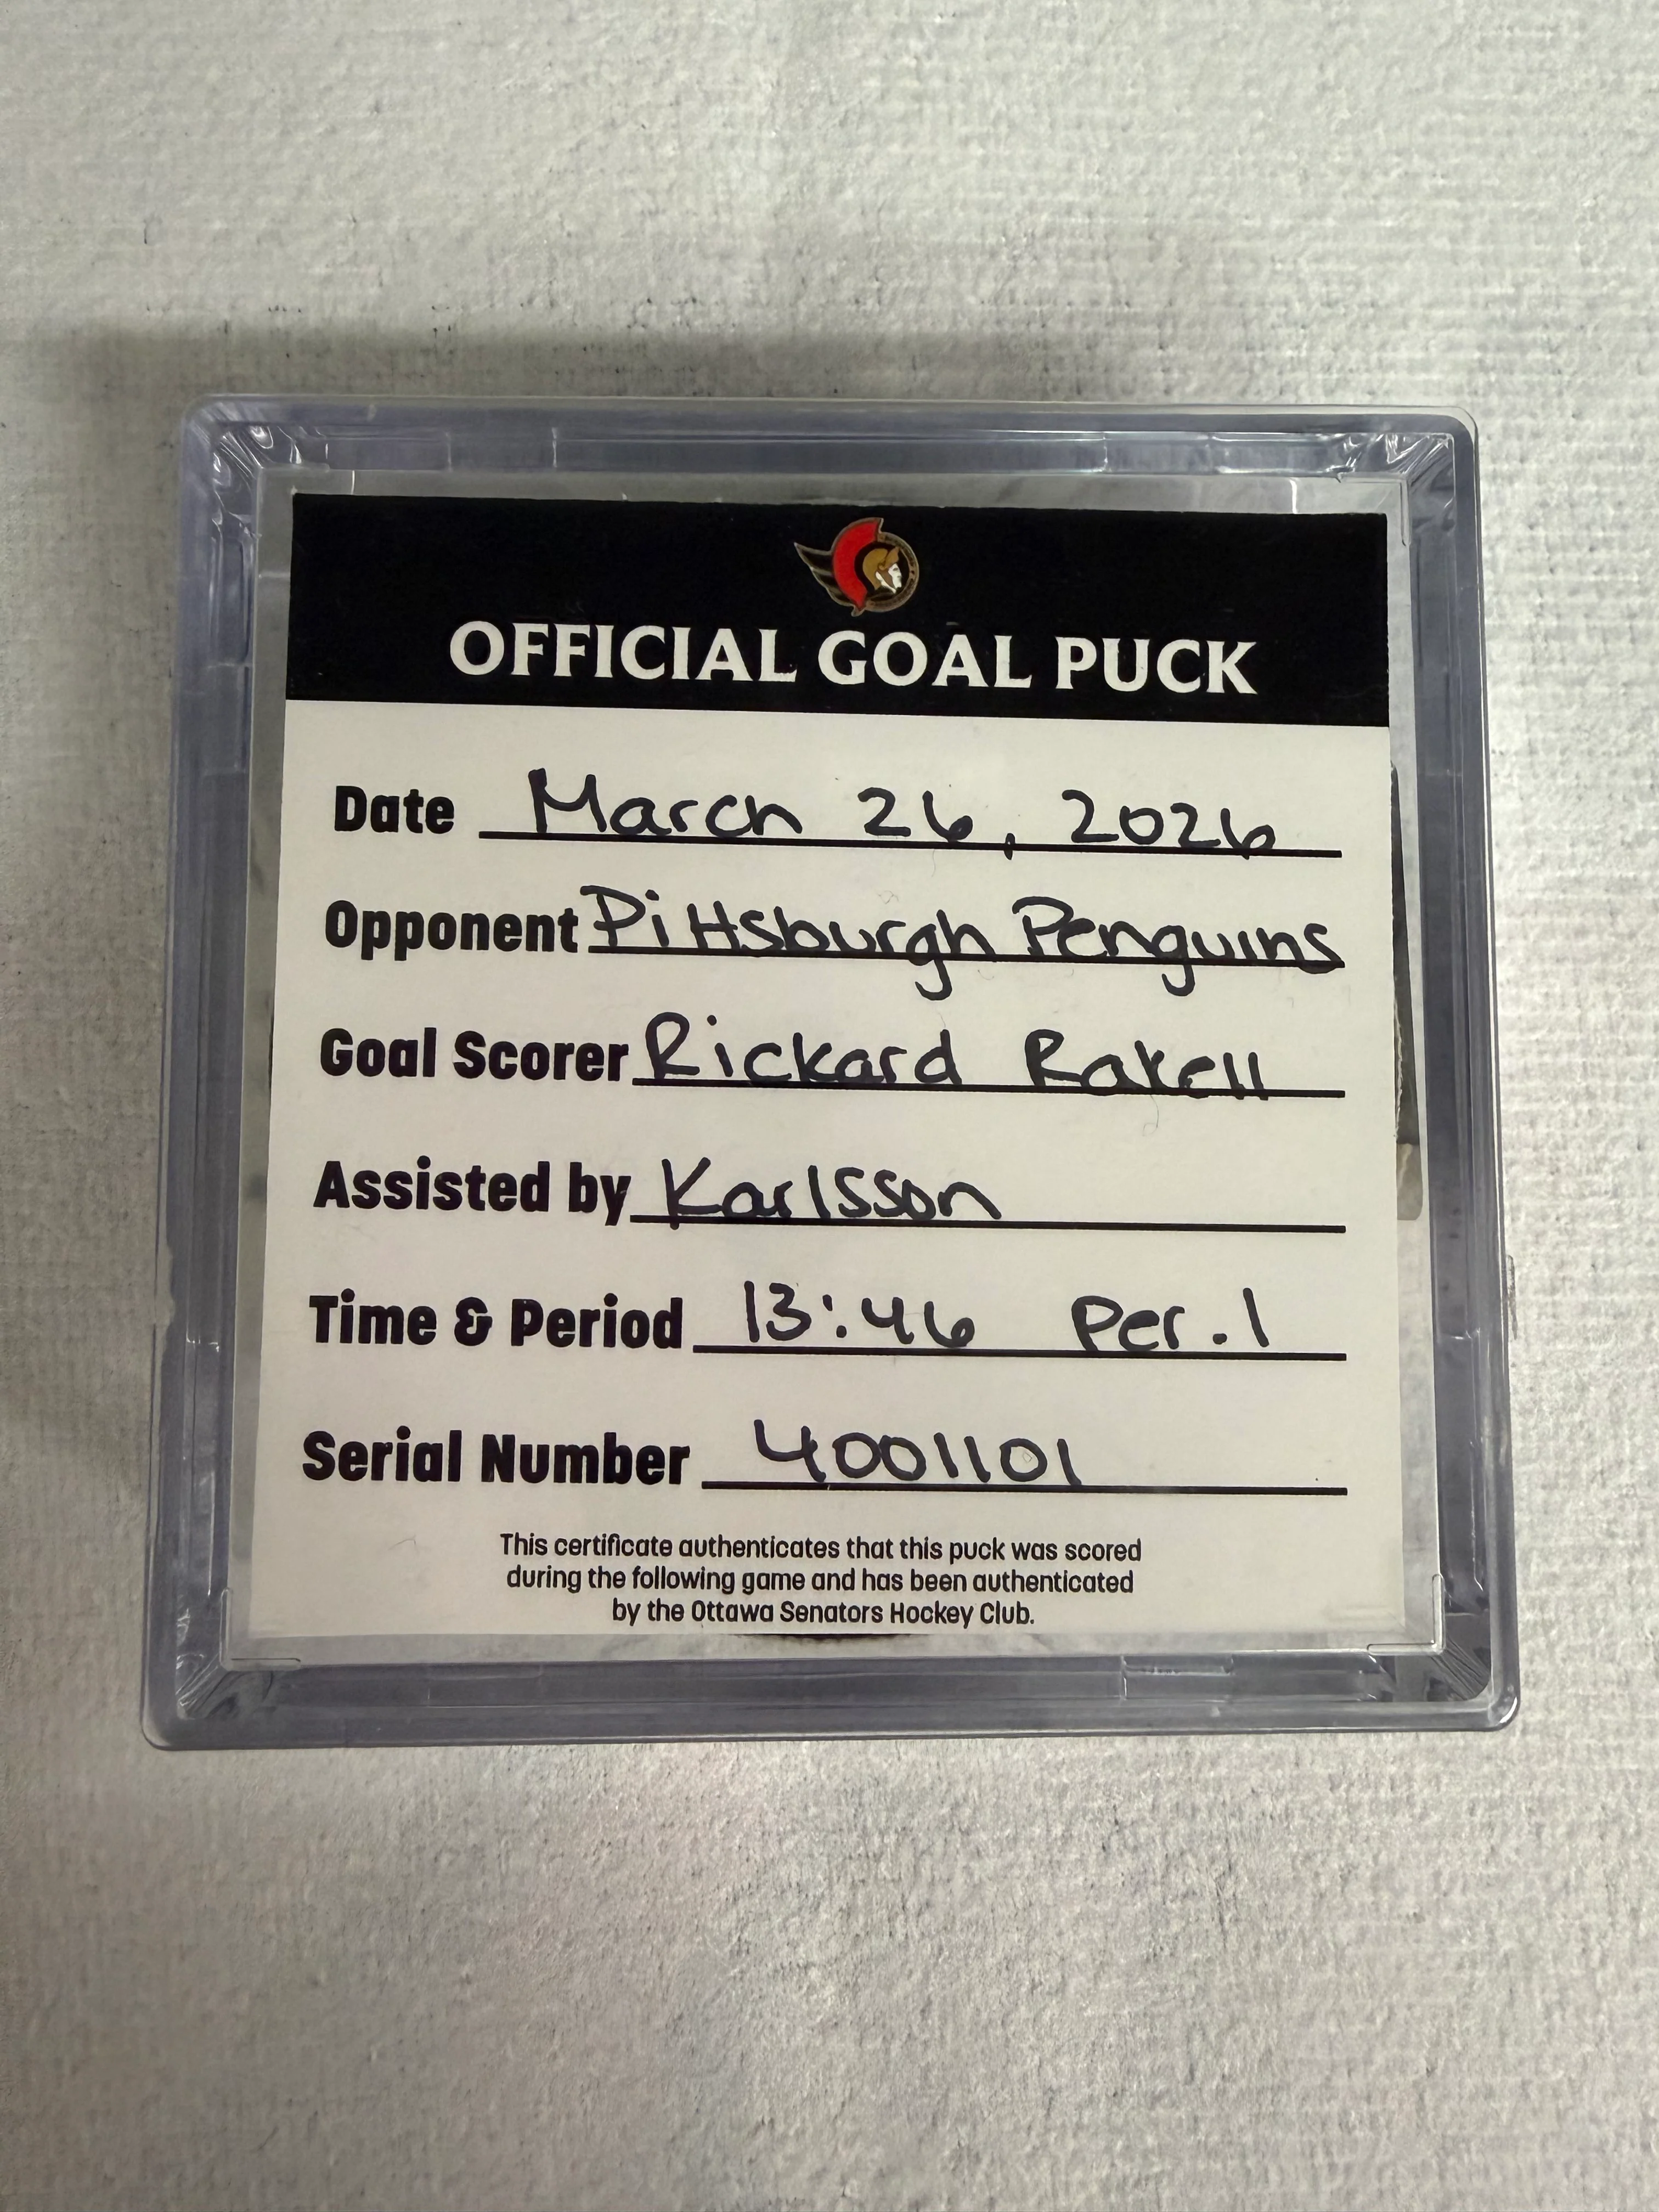 OFFICIAL GOAL PUCK
Date March 26, 2026
Opponent Pittsburgh Penguins
Goal Scorer Rickard Rakell
Assisted by Karlsson
Time & Period 13:46 Per. 1
Serial Number 4001101
This certificate authenticates that this puck was scored
during the following game and has been authenticated
by the Ottawa Senators Hockey Club.